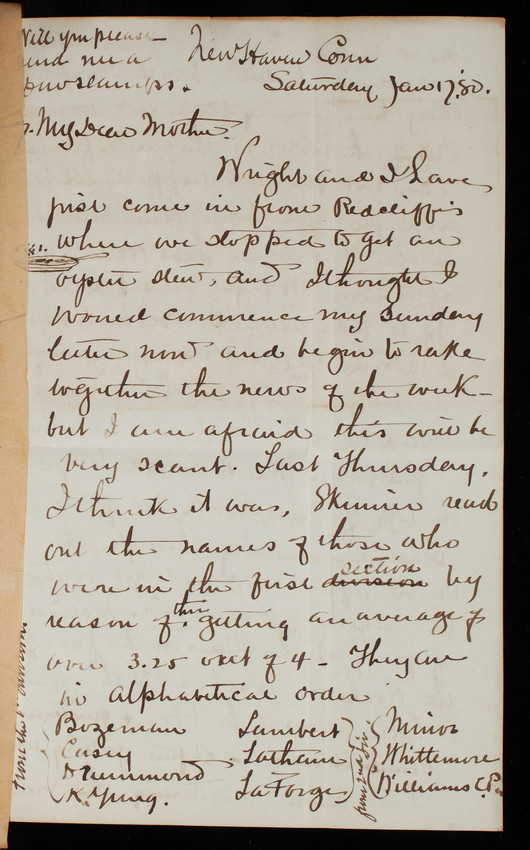 Will you please
send me a
few stamps.
New Haven Conn
Saturday Jan 17, '80.
My Dear Mother.
Wright and I have
just come in from Redcliffe's
where we stopped to get an
oyster stew, and I thought I
would commence my Sunday
letter now and begin to rake
together the news of the week-
but I am afraid this will be
very scant. Last Thursday,
I think it was, Skinner read
out the names of those who
were in the first division section by
reason of their getting an average of
over 3.25 out of 4 - They are
in alphabetical order
Bozeman Lambert Minor
Casey Latham Whittemore
Drummond LaForge Williams C.P.
K. Yung.
from 2nd div.
from the 1st division